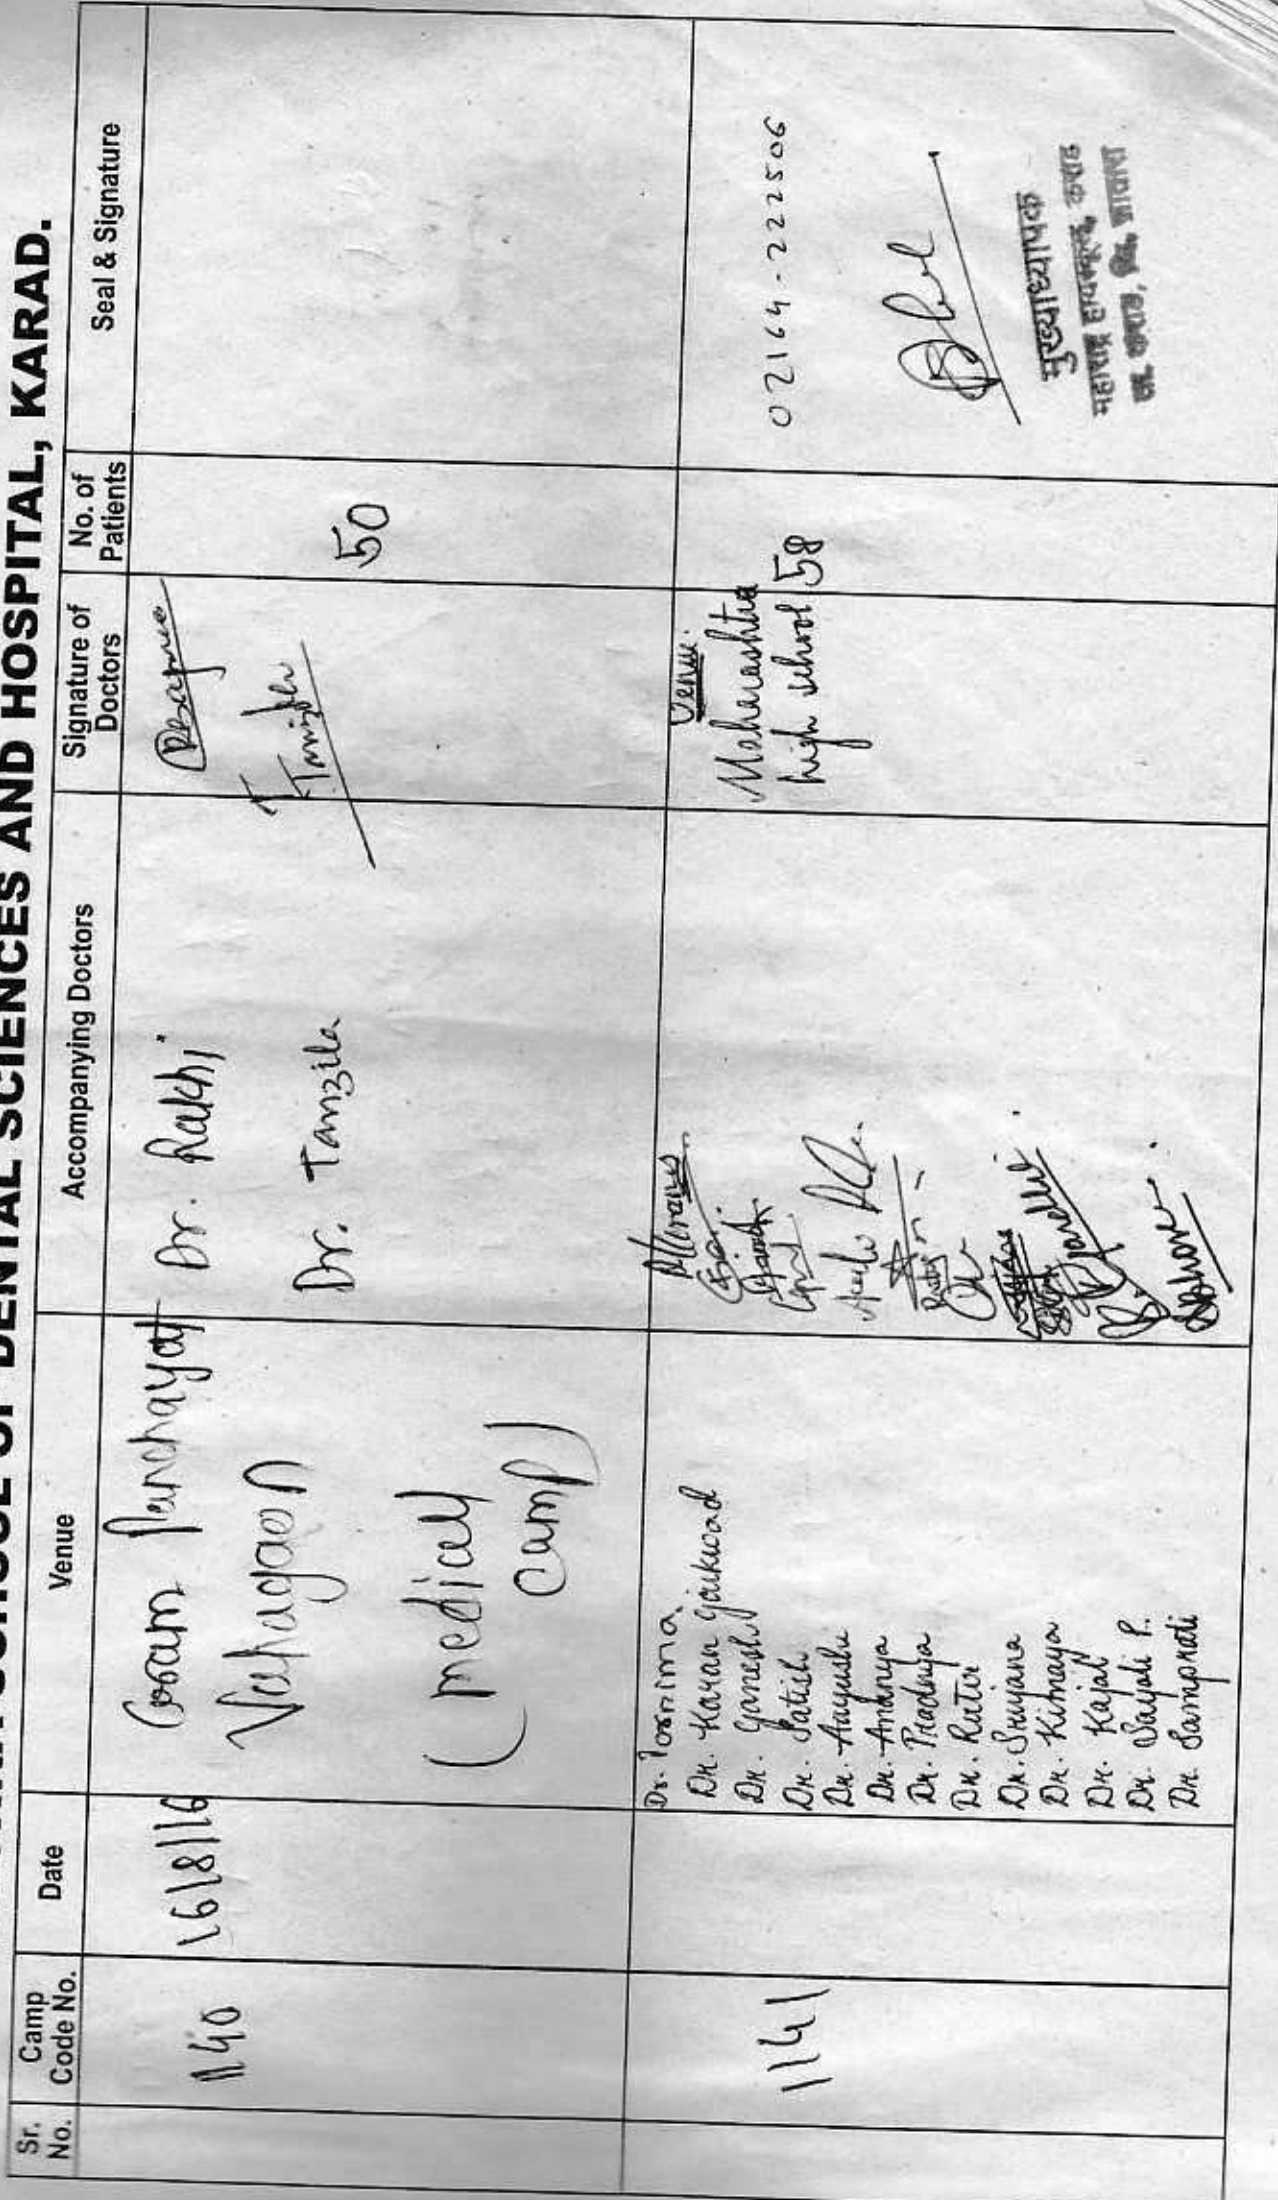 SCHOOL OF DENTAL SCIENCES AND HOSPITAL, KARAD.
Sr. No. Camp Code No. Date Venue Accompanying Doctors Signature of Doctors No. of Patients Seal & Signature
1140 16/8/16 Gram Panchayat Dr. Rakhi
Dr. Tanzila
50
(medical
camp)
1141
Dr. Poornima
Dr. Karan Gaikwad
Dr. Ganesh
Dr. Satish
Dr. Aayushi
Dr. Ananya
Dr. Pradnya
Dr. Rutvi
Dr. Srujana
Dr. Kimaya
Dr. Kajal
Dr. Sayali P.
Dr. Samprati
Venue:
Maharashtra
high school
58
02164-222506
मुख्याध्यापक